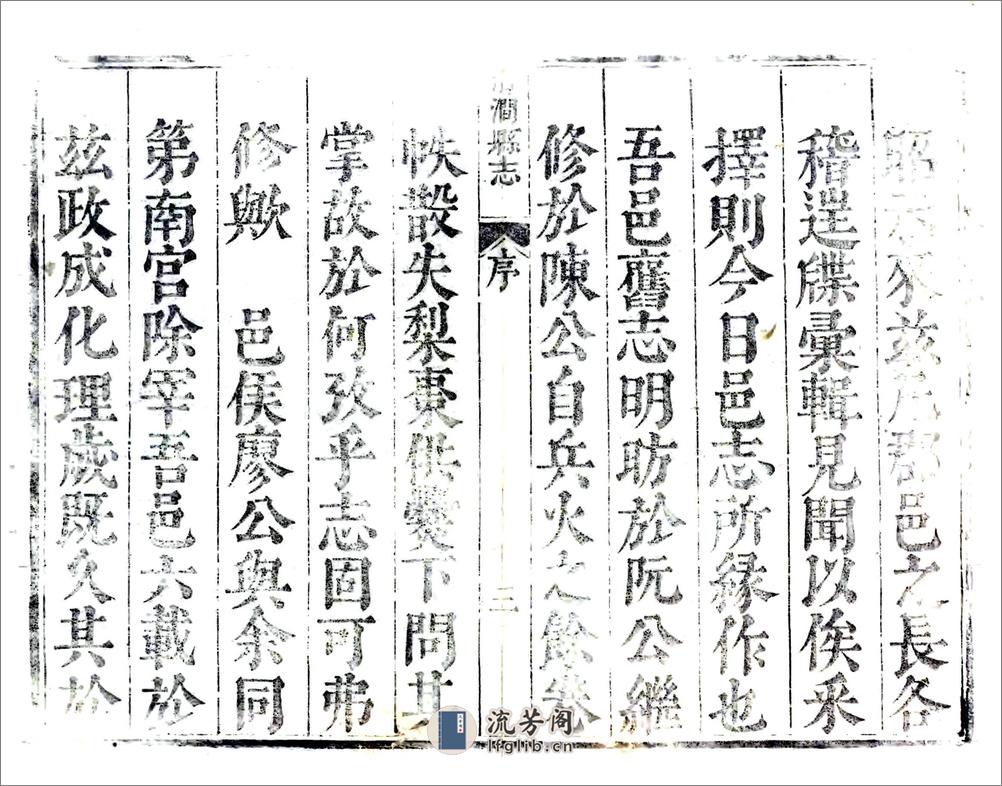 昭示來兹凡郡邑之長各
稽逞牒彙輯見聞以俟采
擇則今日邑志所縁作也
吾邑舊志明昉於阮公繼
修於陳公自兵火之餘卷
澗縣志 序 三
帙散失梨棗供爨下問其
掌故於何攷乎志固可弗
修歟 邑侯廖公與余同
第南宫除宰吾邑六載於
兹政成化理歲既久其於
流芳阁
lfglib.cn